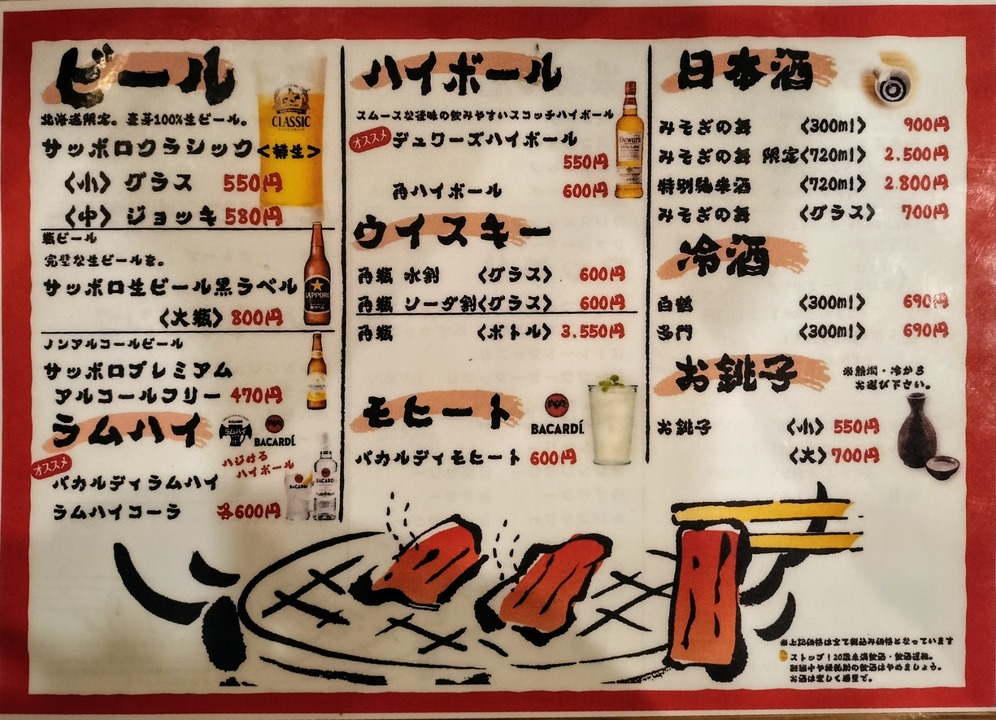 ビール
北海道限定。麦芽100%生ビール。
サッポロクラシック<樽生>
〈小〉グラス 550円
〈中〉ジョッキ 580円
CLASSIC
瓶ビール
完璧な生ビールを。
サッポロ生ビール黒ラベル
〈大瓶〉 800円
SAPPORO
ノンアルコールビール
サッポロプレミアム
アルコールフリー 470円
ラムハイ
ラムハイ
BACARDÍ
ハジける
ハイボール
オススメ
バカルディラムハイ
ラムハイコーラ 各600円
BACARDÍ
ハイボール
スムースな後味の飲みやすいスコッチハイボール
オススメ
デュワーズハイボール
550円
角ハイボール 600円
Dewar's
ウイスキー
角瓶 水割 〈グラス〉 600円
角瓶 ソーダ割〈グラス〉 600円
角瓶 〈ボトル〉 3.550円
モヒート
BACARDÍ
バカルディモヒート 600円
日本酒
みそぎの舞 〈300ml〉 900円
みそぎの舞 限定〈720ml〉 2.500円
特別純米酒 〈720ml〉 2.800円
みそぎの舞 〈グラス〉 700円
冷酒
白鶴 〈300ml〉 690円
多門 〈300ml〉 690円
お銚子
※熱燗・冷から
お選び下さい。
お銚子 〈小〉 550円
〈大〉 700円
※上記価格は全て税込み価格となっています
ストップ!20歳未満飲酒・飲酒運転。
妊娠中や授乳期の飲酒はやめましょう。
お酒は楽しく適量で。